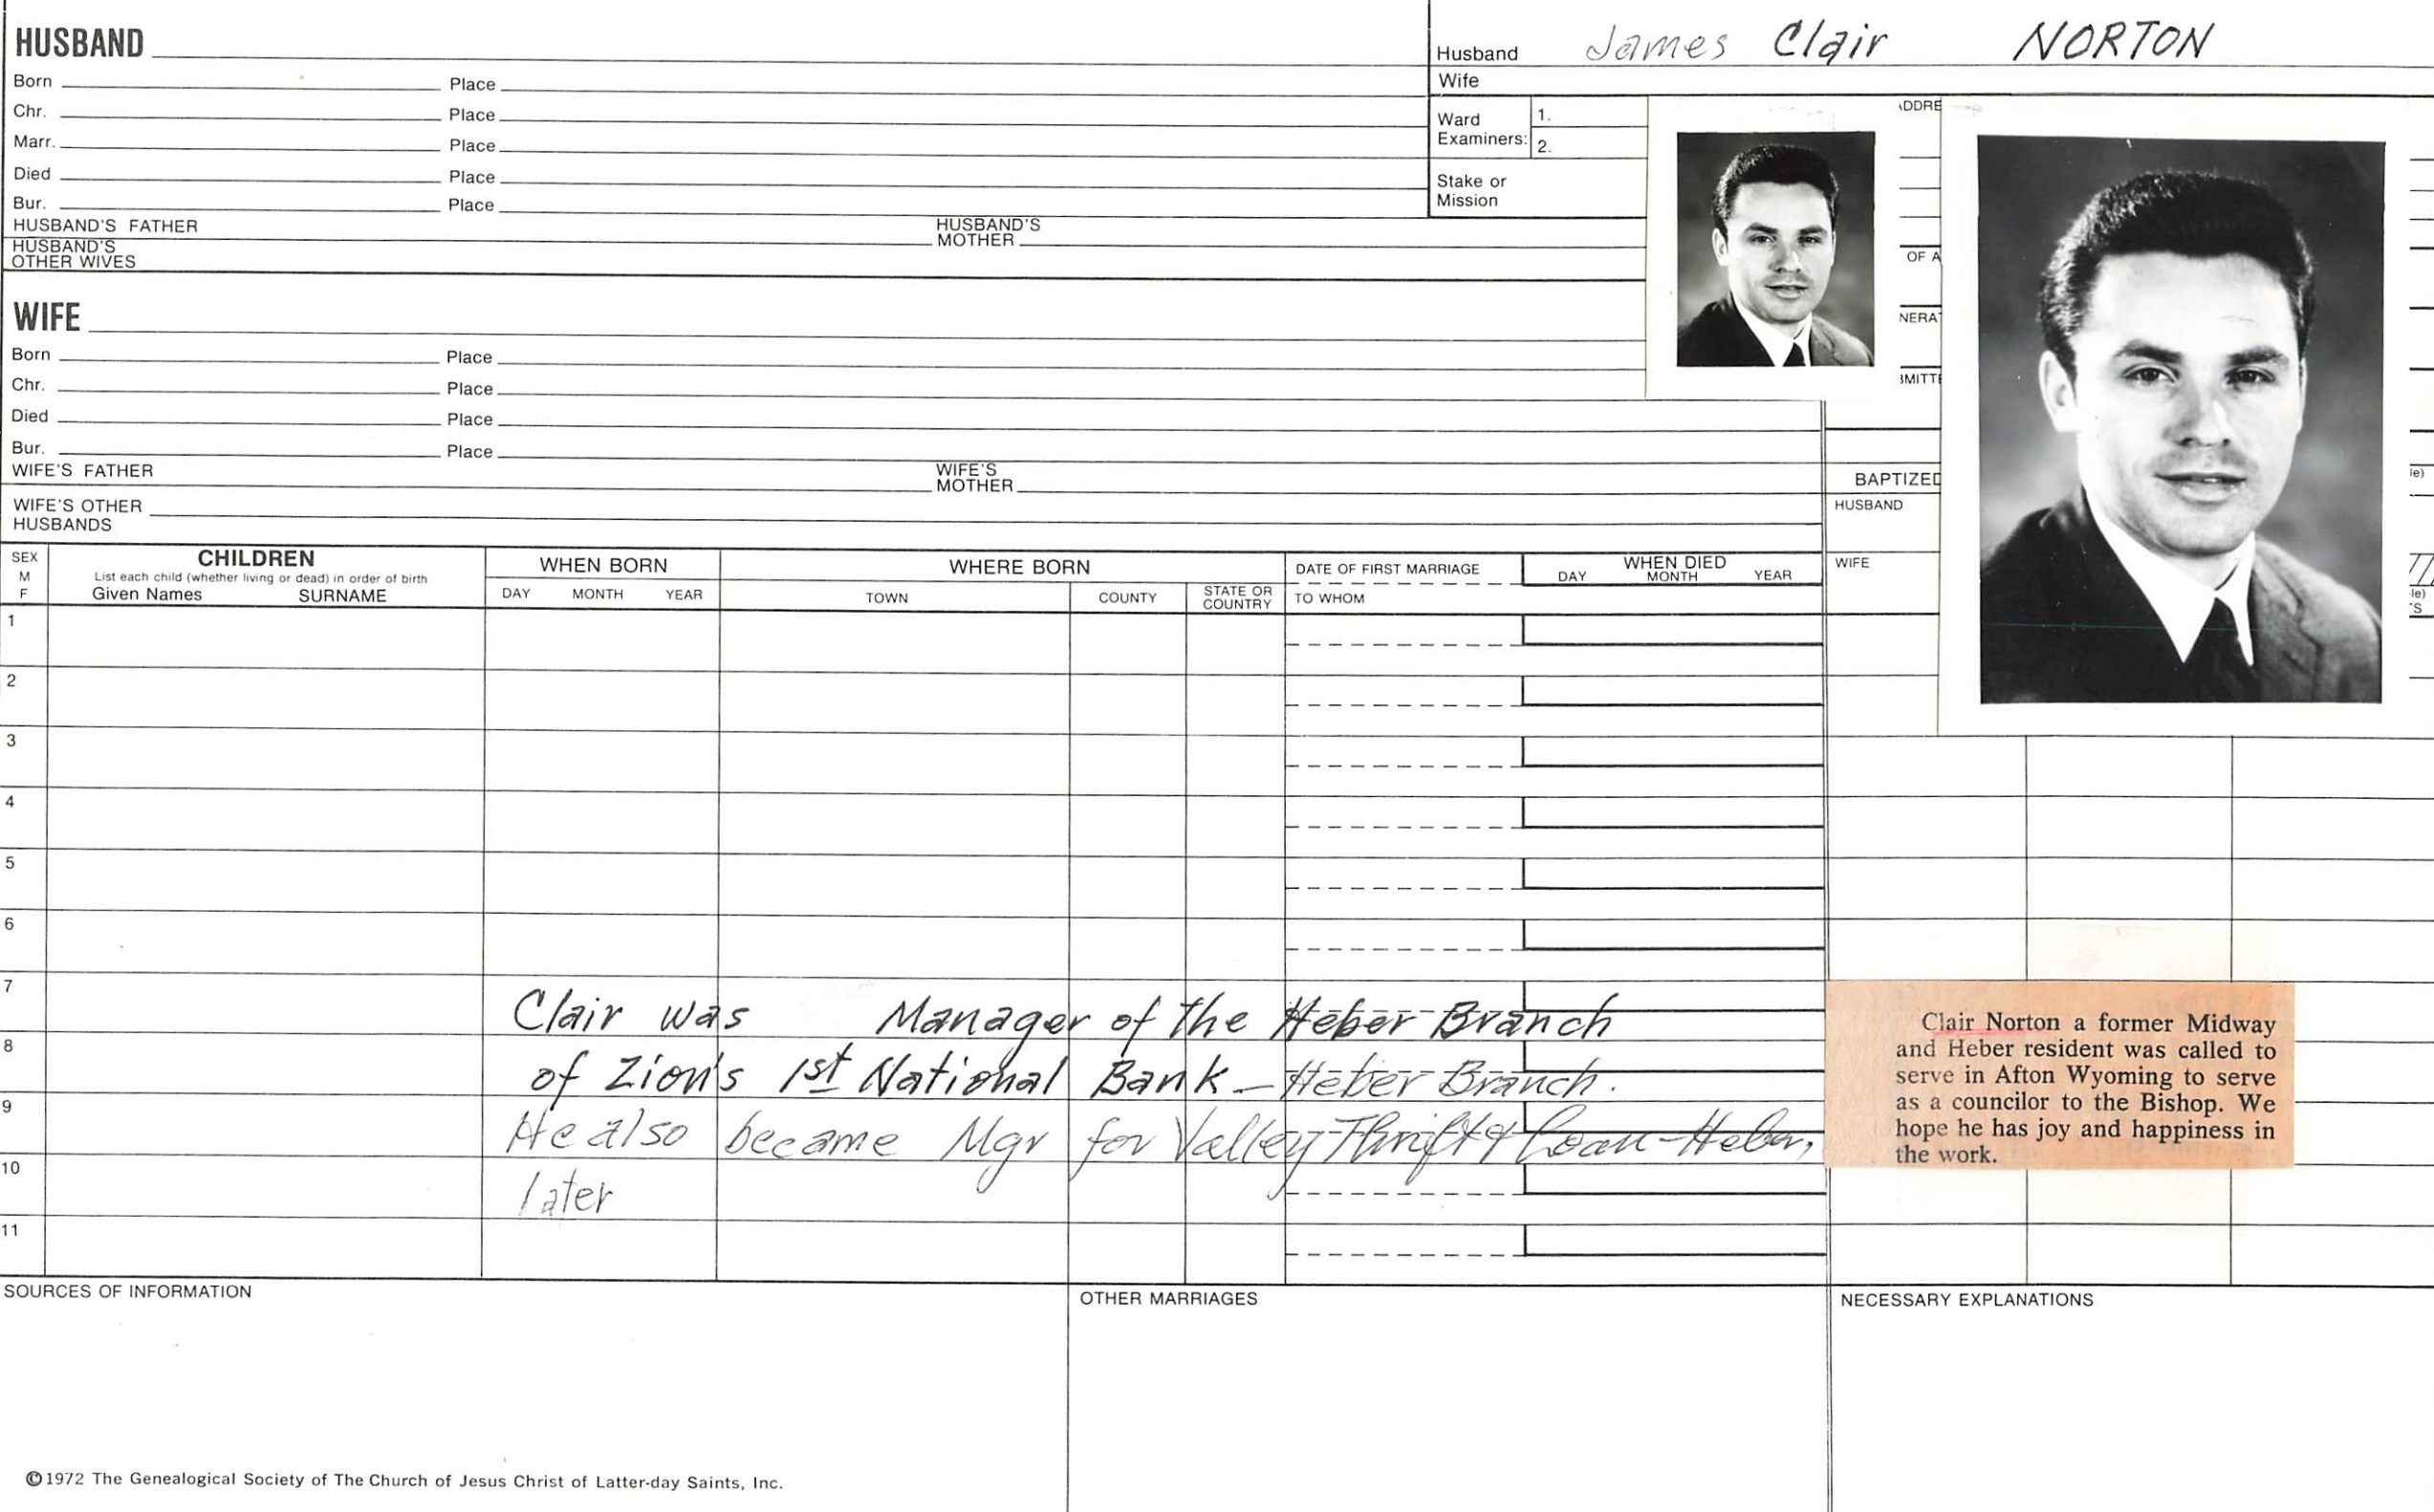 HUSBAND
Born Place
Chr. Place
Marr. Place
Died Place
Bur. Place
HUSBAND'S FATHER HUSBAND'S MOTHER
HUSBAND'S OTHER WIVES
Husband James Clair NORTON
Wife
Ward Examiners: 1.
2.
Stake or Mission
ADDRE
OF A
NERAT
MITTE
WIFE
Born Place
Chr. Place
Died Place
Bur. Place
WIFE'S FATHER WIFE'S MOTHER
WIFE'S OTHER HUSBANDS
BAPTIZED
HUSBAND
WIFE
le)
le)
SEX
M
F
CHILDREN
List each child (whether living or dead) in order of birth
Given Names SURNAME
WHEN BORN
DAY MONTH YEAR
WHERE BORN
TOWN COUNTY STATE OR COUNTRY
DATE OF FIRST MARRIAGE
TO WHOM
WHEN DIED
DAY MONTH YEAR
1
2
3
4
5
6
7
8
9
10
11
Clair was Manager of the Heber Branch
of Zion's 1st National Bank – Heber Branch.
He also became Mgr for Valley Thrift & Loan – Heber,
later
Clair Norton a former Midway
and Heber resident was called to
serve in Afton Wyoming to serve
as a councilor to the Bishop. We
hope he has joy and happiness in
the work.
SOURCES OF INFORMATION
OTHER MARRIAGES
NECESSARY EXPLANATIONS
©1972 The Genealogical Society of The Church of Jesus Christ of Latter-day Saints, Inc.